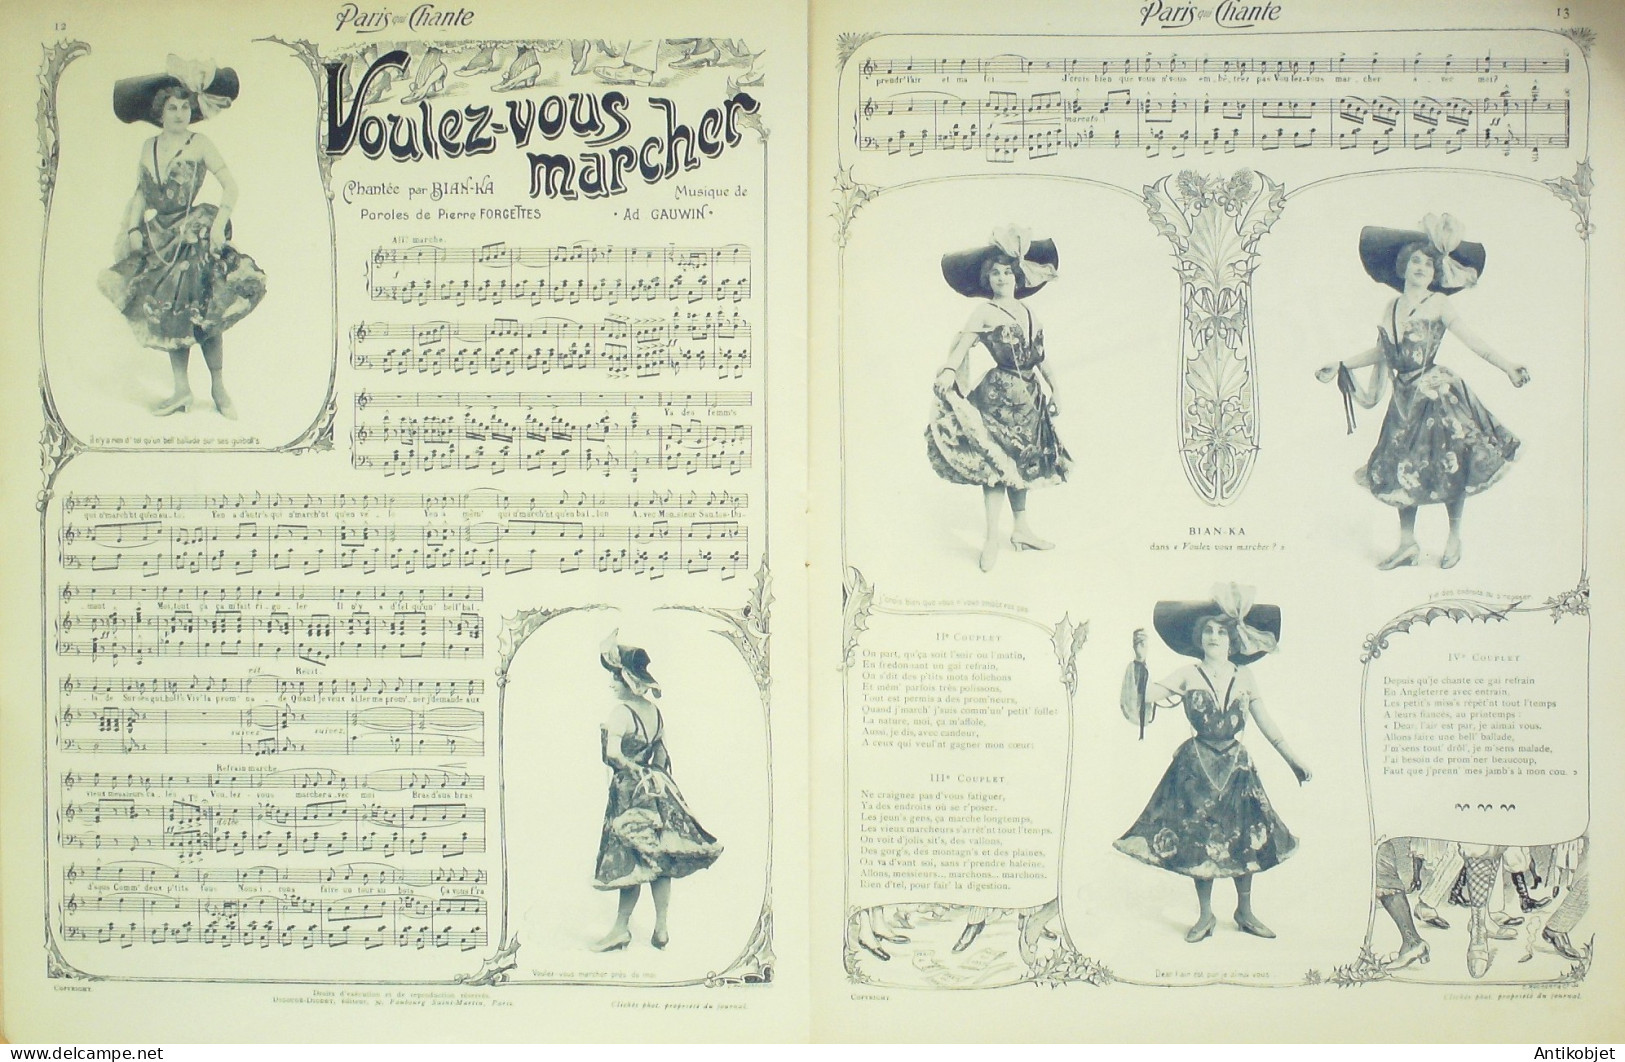 12
Paris qui Chante
Voulez-vous
marcher
Chantée par BIAN-KA
Musique de
Paroles de Pierre FORGETTES
• Ad GAUWIN •
All? marche.
Ya des femm's
Il n'y a rien d' tel qu'un bell' ballade sur ses guiboll's
qui n'march'nt qu'en au_to; Yen a d'autr's qui n'march'nt qu'en vé_lo Yen a mêm' qui n'march'nt qu'en bal_lon A_vec Monsieur Santos-Du_
_mont Moi, tout ça ça m'fait ri_go_ler Il n'y a d'tel qu'un' bell' bal_
rit. Récit.
_la_de Sur ses gui_boll's Viv' la prom'_na_de Quand je veux aller me prom'_ner j'demande aux
suivez. suivez.
Refrain marche
vieux messieurs Vou_lez-vous marcher a_vec moi Bras d'sus bras
d'sous Comm' deux p'tits fous Nous i_rons faire un tour au bois Ça vous f'ra
Voulez-vous marcher près de moi
COPYRIGHT.
Droits d'exécution et de reproduction réservés.
Clichés phot. propriété du journal.
Paris qui Chante
13
prendr' l'air et ma foi J'crois bien que vous n'vous em_bê_trez pas Voulez-vous mar_cher a_vec moi?
marcato
BIAN-KA
dans « Voulez-vous marcher ? »
J'crois bien que vous n'vous embêt'rez pas.
Y'a des endroits où s'reposer.
IIe COUPLET
On part, qu'ça soit l'soir ou l'matin,
En fredonnant un gai refrain,
On s'dit des p'tits mots folichons
Et mêm' parfois très polissons,
Tout est permis a des prom'neurs,
Quand j'march' j'suis comm' un' petit' folle!
La nature, moi, ça m'affole,
Aussi, je dis, avec candeur,
A ceux qui veul'nt gagner mon cœur:
IIIe COUPLET
Ne craignez pas d'vous fatiguer,
Ya des endroits où se r'poser.
Les jeun's gens, ça marche longtemps,
Les vieux marcheurs s'arrêt'nt tout l'temps.
On voit d'jolis sit's, des vallons,
Des gorg's, des montagn's et des plaines,
On va d'vant soi, sans r'prendre haleine,
Allons, messieurs... marchons... marchons.
Rien d'tel, pour fair' la digestion.
IVe COUPLET
Depuis qu'je chante ce gai refrain
En Angleterre avec entrain,
Les petit's miss's répèt'nt tout l'temps
A leurs fiancés, au printemps :
« Dear, l'air est pur, je aimai vous.
Allons faire une bell' ballade,
J'm'sens tout' drôl', je m'sens malade,
J'ai besoin de prom'ner beaucoup,
Faut que j'prenn' mes jamb's à mon cou. »
Dear l'air est pur je aimai vous
COPYRIGHT.
Clichés phot. propriété du journal.
Antikobjet